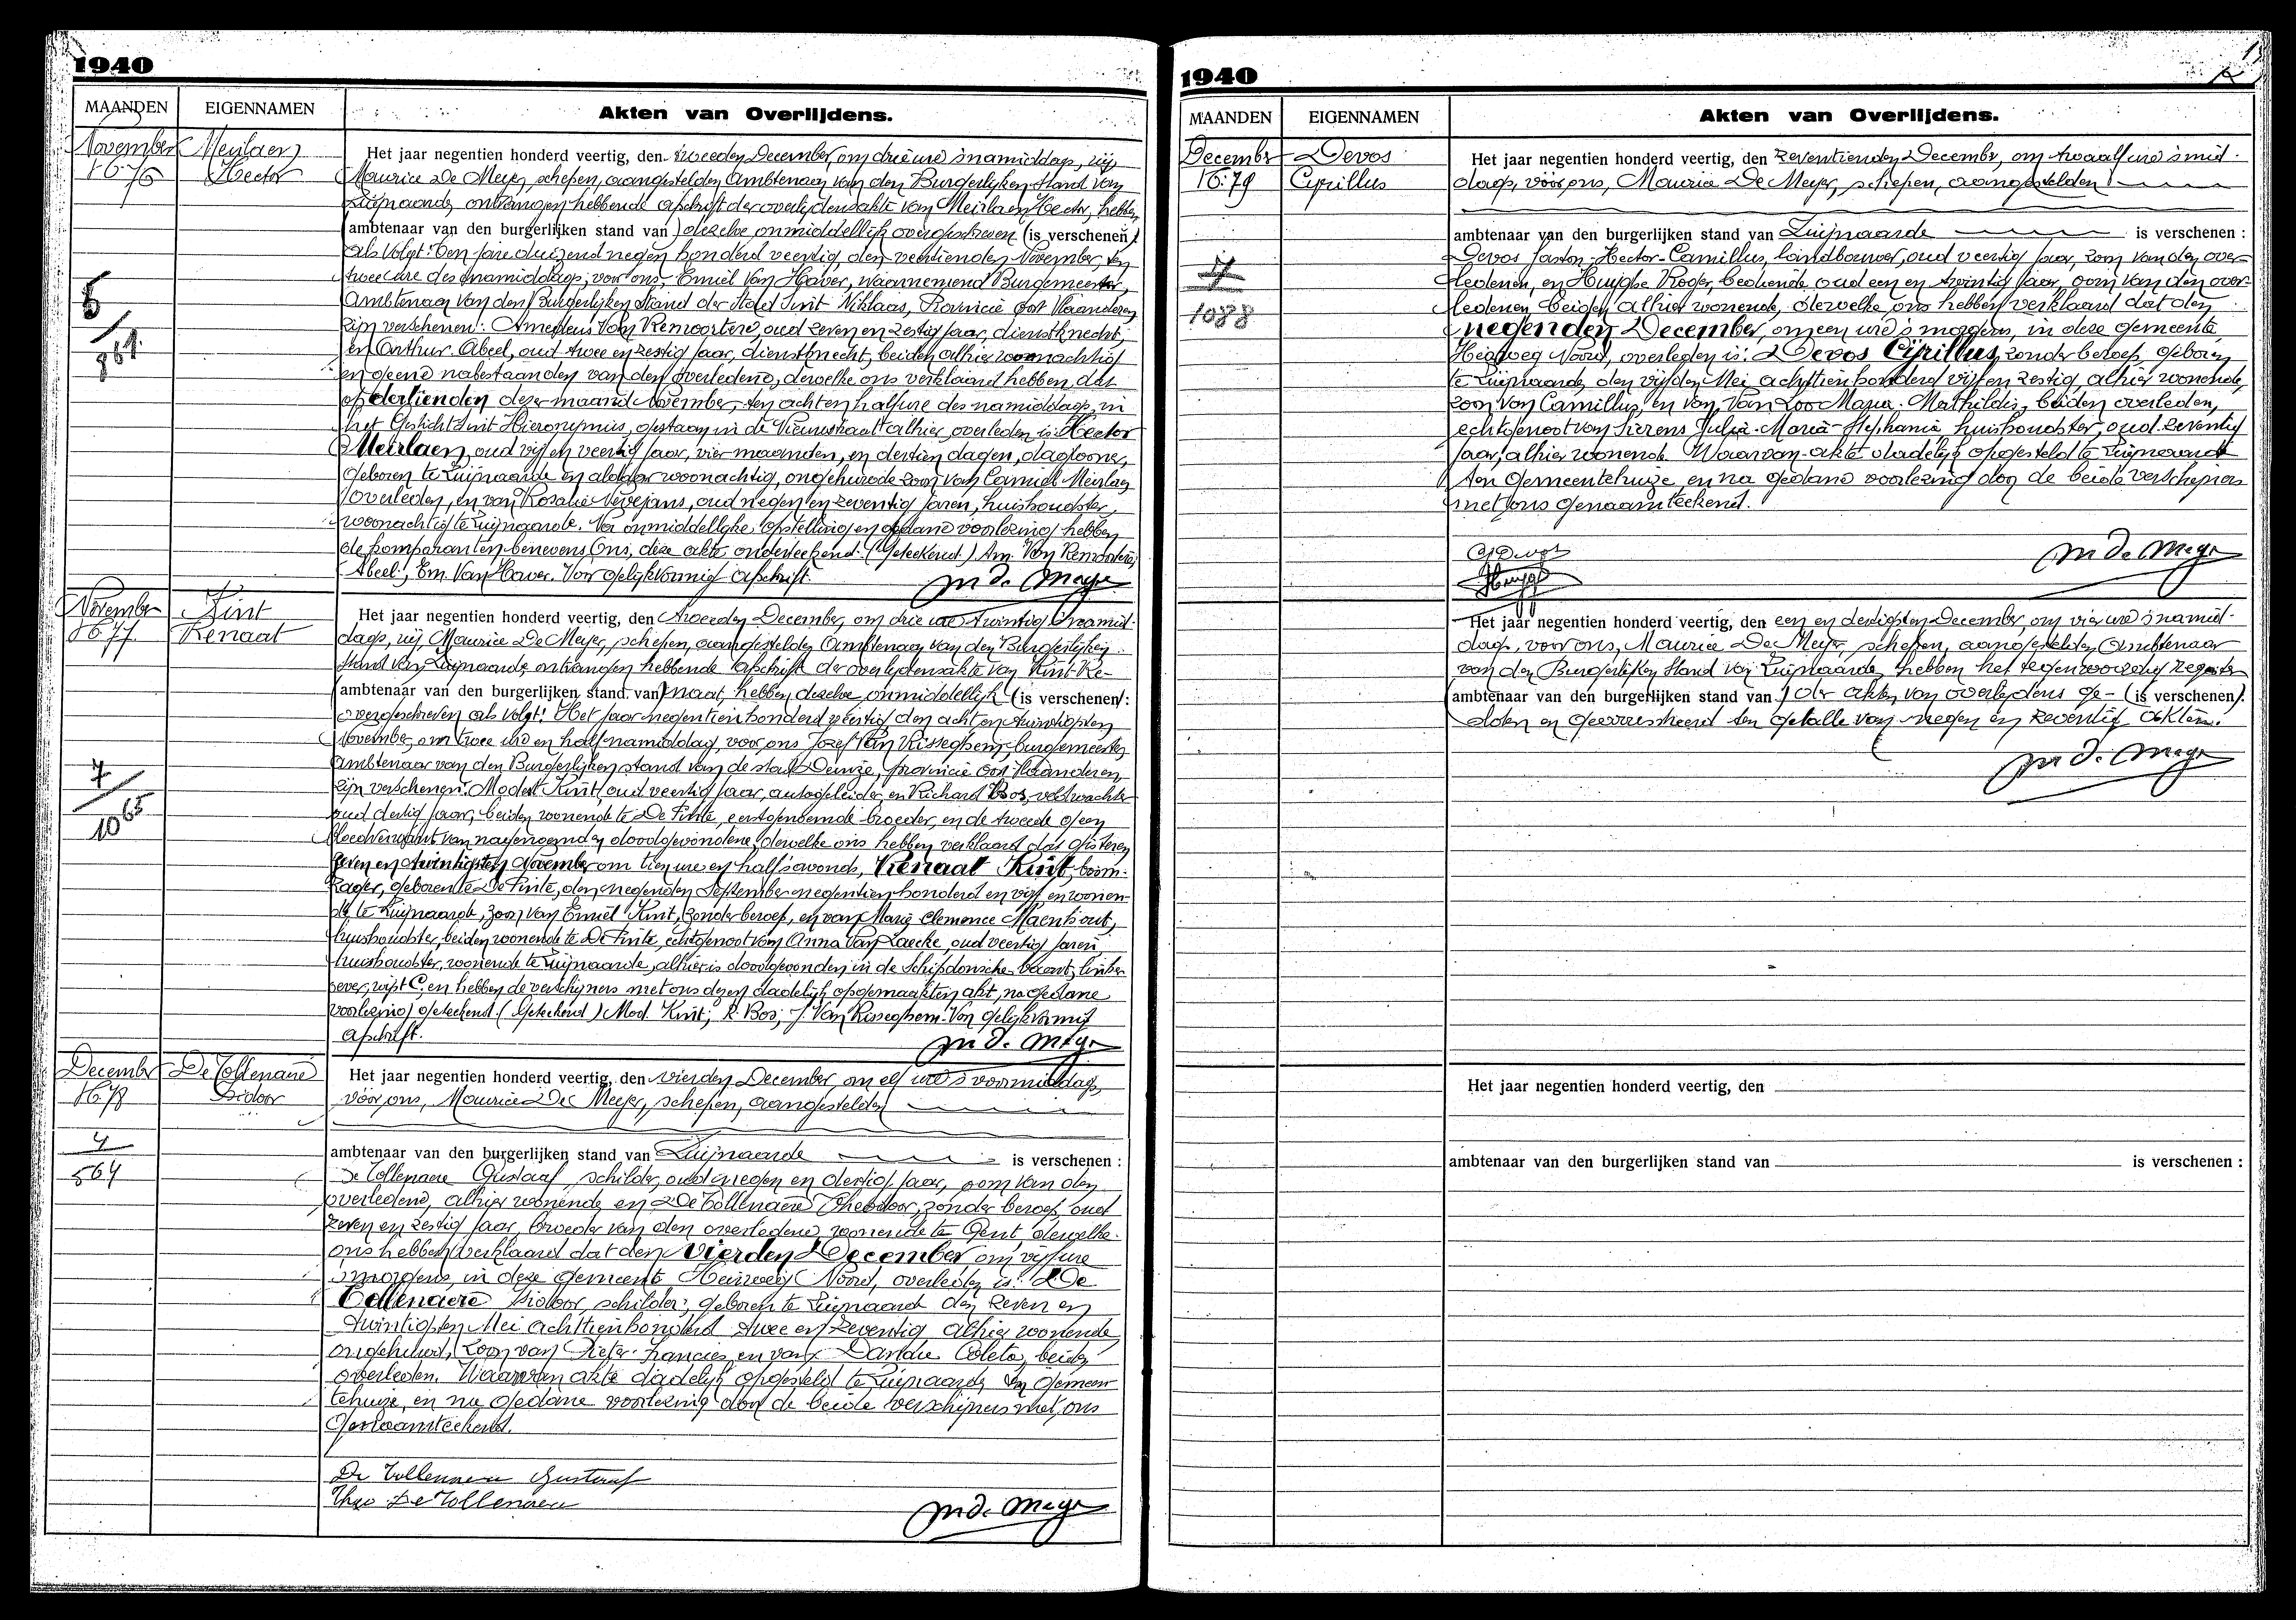 1940
MAANDEN EIGENNAMEN Akten van Overlijdens.
November Meirlaen
N° 76 Hector
Het jaar negentien honderd veertig, den tweeden December, om drie ure 's namiddags, wij
Maurice De Meyer, schepen, aangestelden Ambtenaar van den Burgerlijken Stand van
Zwijnaarde, ontvangen hebbende afschrift der overlijdensakte van Meirlaen Hector, hebben
ambtenaar van den burgerlijken stand van) dezelve onmiddellijk overgeschreven (is verschenen)
als volgt: Ten jare duizend negen honderd veertig, den veertienden November, ten
twee ure des namiddags; voor ons, Emiel Van Haver, waarnemend Burgemeester,
Ambtenaar van den Burgerlijken Stand der Stad Sint Niklaas, Provincie Oost Vlaanderen
zijn verschenen: Amedeus Van Remoortere, oud zeven en zestig jaar, dienstknecht,
en Arthur Abeel, oud twee en zestig jaar, dienstknecht, beiden alhier woonachtig
en geene nabestaanden van den overledene, dewelke ons verklaard hebben, dat
op dertienden dezer maand November, ten achten half ure des namiddags, in
het Gesticht Sint Hieronymus, gestaan in de Nieuwstraat alhier, overleden is: Hector
Meirlaen, oud vijf en veertig jaar, vier maanden, en dertien dagen, daglooner,
geboren te Zwijnaarde en aldaar woonachtig, ongehuwde zoon van Camiel Meirlaen
overleden, en van Rosalie Vervejans, oud negen en zeventig jaren, huishoudster,
woonachtig te Zwijnaarde. Na onmiddellijke opstelling en gedane voorlezing hebben
de komparanten benevens Ons, deze akte onderteekend. (Geteekend) Am. Van Remoortere;
Abeel; Em. Van Haver. Voor gelijkvormig afschrift.
M De Meyer
6
/
861
November Kint
N° 77 Renaat
Het jaar negentien honderd veertig, den tweeden December, om drie ure twintig 's namid-
dags, wij Maurice De Meyer, schepen, aangestelden Ambtenaar van den Burgerlijken
Stand van Zwijnaarde, ontvangen hebbende afschrift der overlijdensakte van Kint Re-
ambtenaar van den burgerlijken stand van) naat, hebben dezelve onmiddellijk (is verschenen):
overgeschreven als volgt: Het jaar negentien honderd veertig den acht en twintigsten
November, om twee ure en half namiddag, voor ons Jozef Van Risseghem, burgemeester
Ambtenaar van den Burgerlijken stand van de stad Deinze, provincie Oost Vlaanderen
zijn verschenen: Modest Kint, oud veertig jaar, autogeleider, en Richard Bos, veldwachter
oud dertig jaar, beiden wonende te De Pinte, eerstgenoemde broeder, en de tweede geen
bloedverwant van nagenoemden doodgevondene, dewelke ons hebben verklaard dat gisteren
zeven en twintigsten November om tien ure en half 's avonds, Renaat Kint, boom-
zager, geboren te De Pinte, den negenden September negentien honderd en vijf, en wonen-
de te Zwijnaarde, zoon van Emiel Kint, zonder beroep, en van Marie Clemence Maenhout,
huishoudster, beiden wonende te De Pinte, echtgenoot van Anna Van Laecke, oud veertig jaren,
huishoudster, wonende te Zwijnaarde, alhier is doodgevonden in de Schipdonsche-vaart, linker
oever, wijk C, en hebben de verschijners met ons dezen dadelijk opgemaakten akt, na gedane
voorlezing geteekend. (Geteekend) Mod. Kint; R. Bos; J. Van Risseghem. Voor gelijkvormig
Afschrift.
M De Meyer
7
/
1065
December De Tollenaere
N° 78 Isidoor
Het jaar negentien honderd veertig, den vierden December, om elf ure 's voormiddags
vóór ons, Maurice De Meyer, schepen, aangestelden
ambtenaar van den burgerlijken stand van Zwijnaarde is verschenen :
De Tollenaere Gustaaf, schilder, oud negen en dertig jaar, oom van den
overledene, alhier wonende, en De Tollenaere Theodoor, zonder beroep, oud
zeven en zestig jaar, broeder van den overledene, wonende te Gent, dewelke
ons hebben verklaard dat den Vierden December om vijf ure
's morgens, in deze gemeente Heirweg Noord, overleden is: De
Tollenaere Isidoor, schilder; geboren te Zwijnaarde den zeven en
twintigsten Mei achttienhonderd twee en zeventig, alhier wonende,
ongehuwd, zoon van Pieter-Francies, en van Coleta, beiden
overleden. Waarvan akte dadelijk opgesteld te Zwijnaarde ten Gemeen-
tehuize, en na gedane voorlezing door de beide verschijners met ons
genaamteekend.
4
564
De Tollenaere Gustaaf
Theo De Tollenaere
M De Meyer
1940
MAANDEN EIGENNAMEN Akten van Overlijdens.
December Devos
N° 79 Cyrillus
Het jaar negentien honderd veertig, den zeventienden December, om twaalf ure 's mid-
dags, vóór ons, Maurice De Meyer, schepen, aangestelden
ambtenaar van den burgerlijken stand van Zwijnaarde is verschenen :
Devos Gaston-Hector-Camillus, landbouwer, oud veertig jaar, zoon van den over-
ledenen, en Huyghe Roger, bediende, oud een en twintig jaar, oom van den over-
ledenen, beiden alhier wonende, dewelke ons hebben verklaard dat den
negenden December, om een ure 's morgens, in deze gemeente
Heirweg Noord, overleden is: Devos Cyrillus, zonder beroep, geboren
te Zwijnaarde, den vijfden Mei achttienhonderd vijf en zestig, alhier wonende,
zoon van Camillus, en van Van Loo Maria-Mathildis, beiden overleden,
echtgenoot van Sierens Julia-Maria-Stephania, huishoudster, oud zeventig
jaar, alhier wonende. Waarvan akte dadelijk opgesteld te Zwijnaarde
ten Gemeentehuize, en na gedane voorlezing door de beide verschijners
met ons genaamteekend.
1088
G Devos
Huyghe
M De Meyer
Het jaar negentien honderd veertig, den een en dertigsten December, om vier ure 's namid-
dags, voor ons, Maurice De Meyer, schepen, aangestelden Ambtenaar
van den Burgerlijken Stand van Zwijnaarde, hebben het tegenwoordig register
ambtenaar van den burgerlijken stand van) der akten van overlijdens ge- (is verschenen):
sloten en gearresteerd ten getalle van negen en zeventig akten.
M De Meyer
Het jaar negentien honderd veertig, den
ambtenaar van den burgerlijken stand van is verschenen :